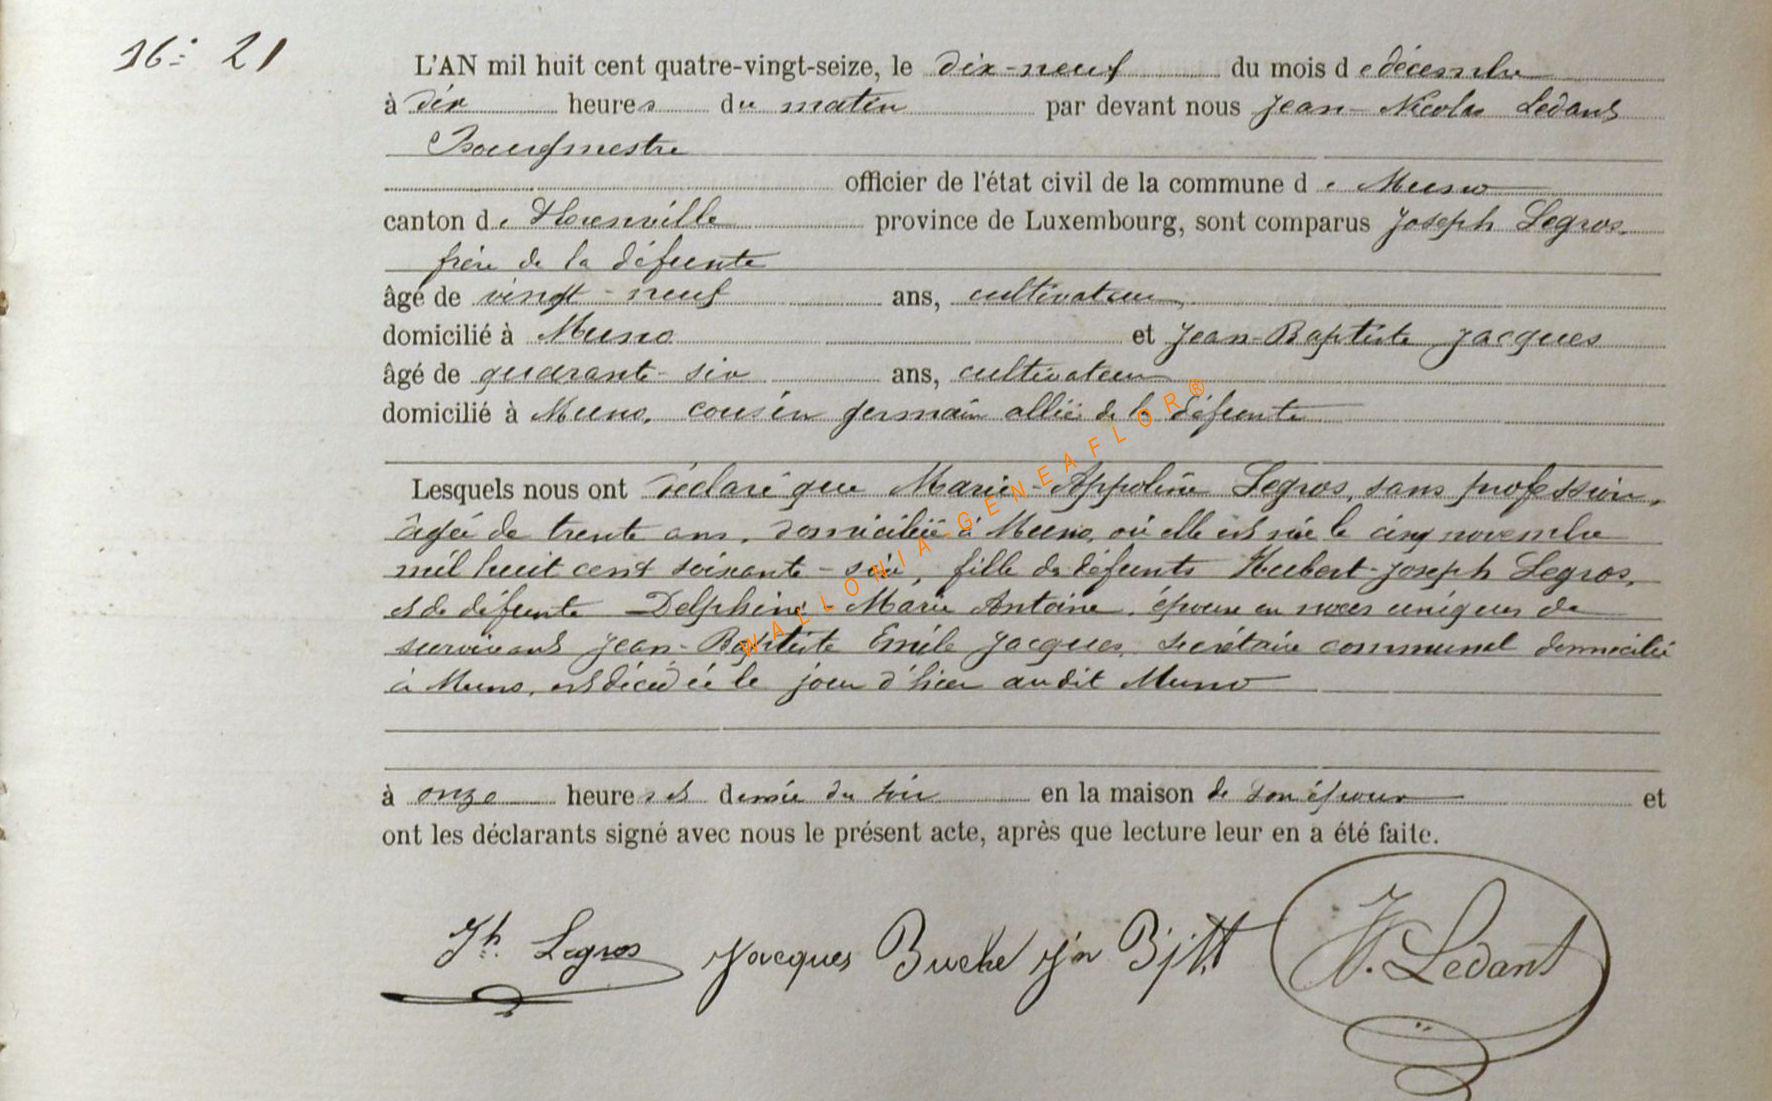 16: 21
L'AN mil huit cent quatre-vingt-seize, le dix-neuf du mois de décembre
à dix heures du matin par devant nous Jean-Nicolas Ledant
Bourgmestre
officier de l'état civil de la commune de Muno
canton de Florenville province de Luxembourg, sont comparus Joseph Legros
frère de la défunte
âgé de vingt-neuf ans, cultivateur,
domicilié à Muno et Jean-Baptiste Jacques
âgé de quarante-six ans, cultivateur
domicilié à Muno, cousin germain allié de la défunte
Lesquels nous ont déclaré que Marie-Appoline Legros, sans profession,
âgée de trente ans, domiciliée à Muno, où elle est née le cinq novembre
mil huit cent soixante-six, fille de défunts Hubert-Joseph Legros,
et de défunte Delphine Marie Antoine, épouse en noces uniques de
survivant Jean-Baptiste Emile Jacques, secrétaire communal domicilié
à Muno, est décédée le jour d'hier audit Muno
à onze heures et demie du soir en la maison de son époux et
ont les déclarants signé avec nous le présent acte, après que lecture leur en a été faite.
Jh. Legros Jacques Buche Jn Bptt J. Ledant
WALLONIA-GENEAFLOR®